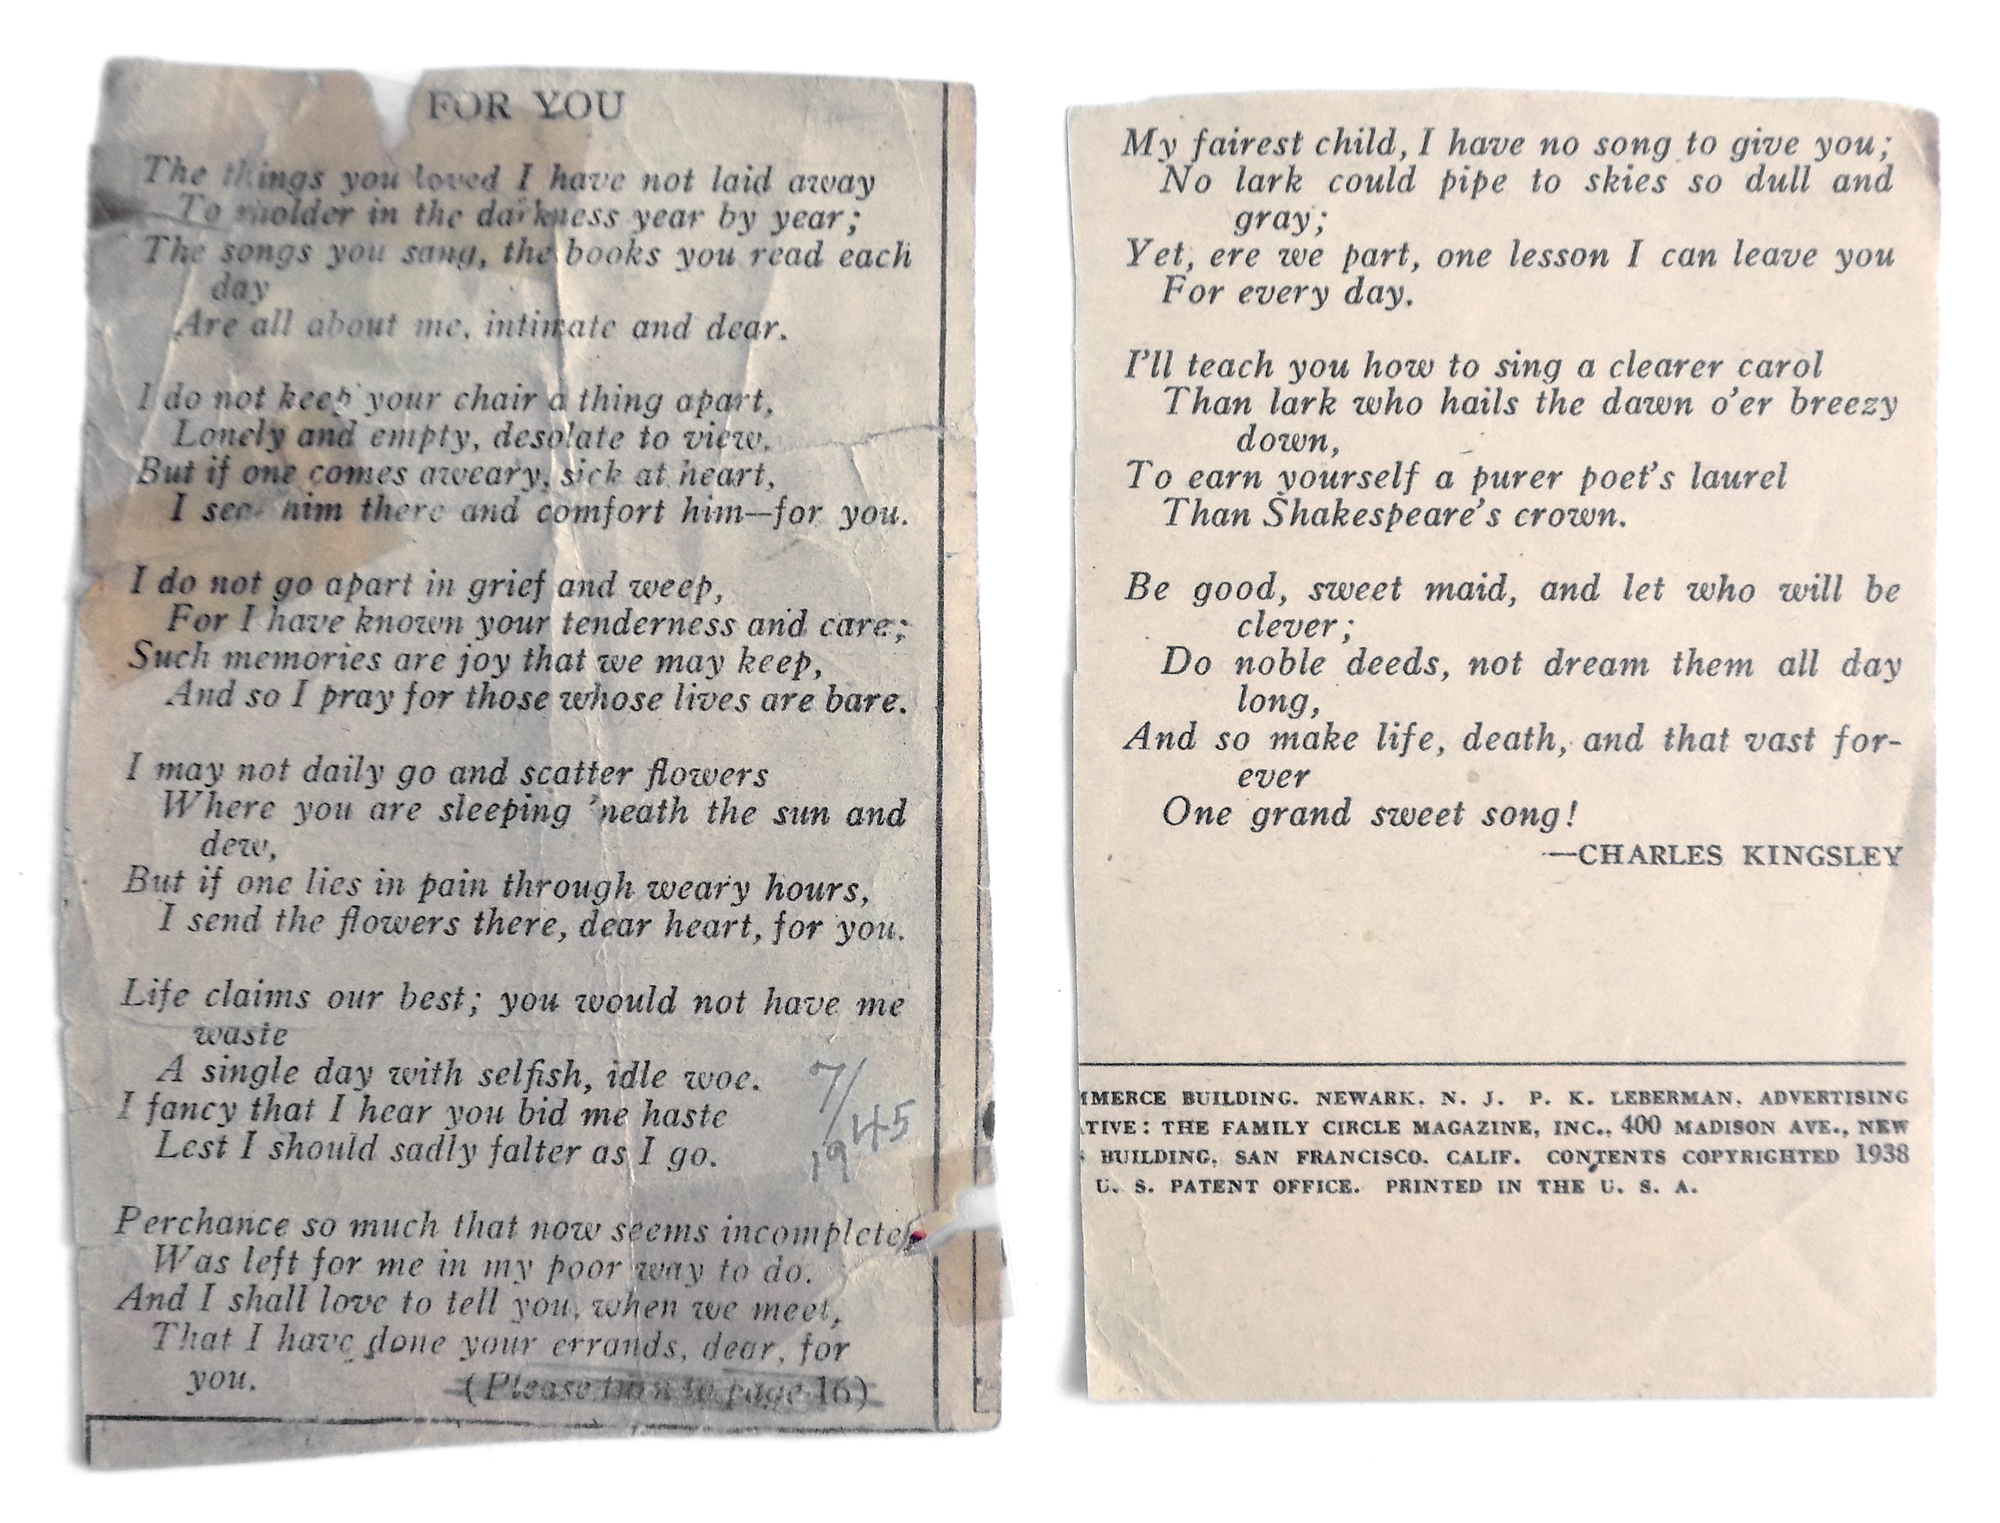 FOR YOU
The things you loved I have not laid away
To molder in the darkness year by year;
The songs you sang, the books you read each
day
Are all about me, intimate and dear.
I do not keep your chair a thing apart,
Lonely and empty, desolate to view,
But if one comes aweary, sick at heart,
I seat him there and comfort him—for you.
I do not go apart in grief and weep,
For I have known your tenderness and care;
Such memories are joy that we may keep,
And so I pray for those whose lives are bare.
I may not daily go and scatter flowers
Where you are sleeping 'neath the sun and
dew,
But if one lies in pain through weary hours,
I send the flowers there, dear heart, for you.
Life claims our best; you would not have me
waste
A single day with selfish, idle woe.
I fancy that I hear you bid me haste
Lest I should sadly falter as I go.
7/
1945
Perchance so much that now seems incomplete
Was left for me in my poor way to do.
And I shall love to tell you, when we meet,
That I have done your errands, dear, for
you.
(Please turn to page 16)
My fairest child, I have no song to give you;
No lark could pipe to skies so dull and
gray;
Yet, ere we part, one lesson I can leave you
For every day.
I'll teach you how to sing a clearer carol
Than lark who hails the dawn o'er breezy
down,
To earn yourself a purer poet's laurel
Than Shakespeare's crown.
Be good, sweet maid, and let who will be
clever;
Do noble deeds, not dream them all day
long,
And so make life, death, and that vast for-
ever
One grand sweet song!
—CHARLES KINGSLEY
MMERCE BUILDING, NEWARK, N. J. P. K. LEBERMAN, ADVERTISING
TIVE: THE FAMILY CIRCLE MAGAZINE, INC., 400 MADISON AVE., NEW
BUILDING, SAN FRANCISCO, CALIF. CONTENTS COPYRIGHTED 1938
U. S. PATENT OFFICE. PRINTED IN THE U. S. A.